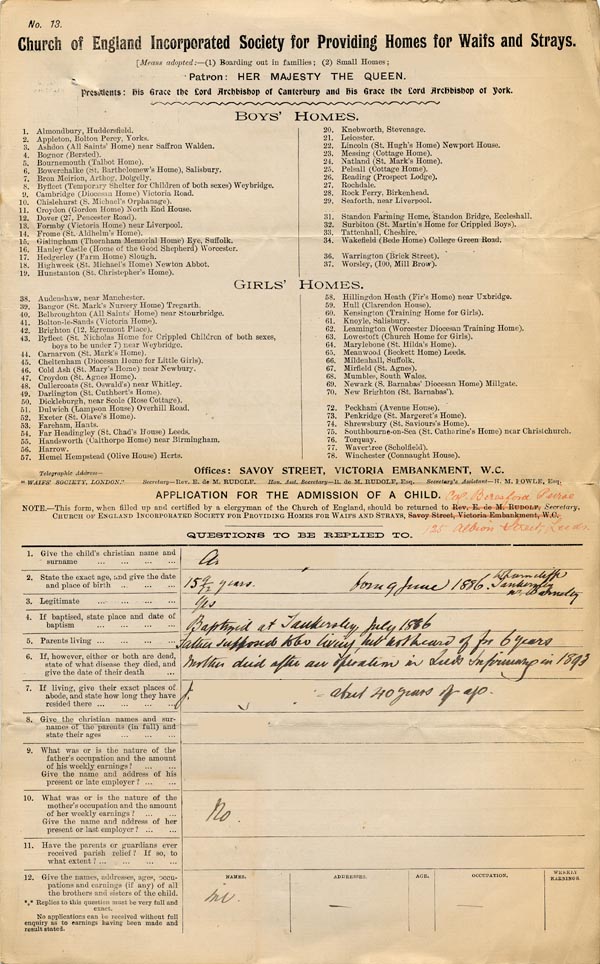 No. 13.
Church of England Incorporated Society for Providing Homes for Waifs and Strays.
[Means adopted:—(1) Boarding out in families; (2) Small Homes;
Patron: HER MAJESTY THE QUEEN.
Presidents: His Grace the Lord Archbishop of Canterbury and His Grace the Lord Archbishop of York.
BOYS' HOMES.
1. Almondbury, Huddersfield.
2. Appleton, Bolton Percy, Yorks.
3. Ashdon (All Saints' Home) near Saffron Walden.
4. Bognor (Bersted).
5. Bournemouth (Talbot Home).
6. Bowerchalke (St. Bartholomew's Home), Salisbury.
7. Bron Meirion, Arthog, Dolgelly.
8. Byfleet (Temporary Shelter for Children of both sexes) Weybridge.
9. Cambridge (Diocesan Home) Victoria Road.
10. Chislehurst (S. Michael's Orphanage).
11. Croydon (Gordon Home) North End House.
12. Dover (27, Pencester Road).
13. Formby (Victoria Home) near Liverpool.
14. Frome (St. Aldhelm's Home).
15. Gislingham (Thornham Memorial Home) Eye, Suffolk.
16. Hanley Castle (Home of the Good Shepherd) Worcester.
17. Hedgerley (Farm Home) Slough.
18. Highweek (St. Michael's Home) Newton Abbot.
19. Hunstanton (St. Christopher's Home).
20. Knebworth, Stevenage.
21. Leicester.
22. Lincoln (St. Hugh's Home) Newport House.
23. Messing (Cottage Home).
24. Natland (St. Mark's Home).
25. Pelsall (Cottage Home).
26. Reading (Prospect Lodge).
27. Rochdale.
28. Rock Ferry, Birkenhead.
29. Seaforth, near Liverpool.
31. Standon Farming Home, Standon Bridge, Eccleshall.
32. Surbiton (St. Martin's Home for Crippled Boys).
33. Tattenhall, Cheshire.
34. Wakefield (Bede Home) College Green Road.
36. Warrington (Brick Street).
37. Worsley, (100, Mill Brow).
GIRLS' HOMES.
38. Audenshaw, near Manchester.
39. Bangor (St. Mark's Nursery Home) Tregarth.
40. Belbroughton (All Saints' Home) near Stourbridge.
41. Bolton-le-Sands (Victoria Home).
42. Brighton (12, Egremont Place).
43. Byfleet (St. Nicholas Home for Crippled Children of both sexes,
boys to be under 7) near Weybridge.
44. Carnarvon (St. Mark's Home).
45. Cheltenham (Diocesan Home for Little Girls).
46. Cold Ash (St. Mary's Home) near Newbury.
47. Croydon (St. Agnes Home).
48. Cullercoats (St. Oswald's) near Whitley.
49. Darlington (St. Cuthbert's Home).
50. Dickleburgh, near Scole (Rose Cottage).
51. Dulwich (Lampson House) Overhill Road.
52. Exeter (St. Olave's Home).
53. Fareham, Hants.
54. Far Headingley (St. Chad's House) Leeds.
55. Handsworth (Calthorpe Home) near Birmingham.
56. Harrow.
57. Hemel Hempstead (Olive House) Herts.
58. Hillingdon Heath (Fir's Home) near Uxbridge.
59. Hull (Clarendon House).
60. Kensington (Training Home for Girls).
61. Knoyle, Salisbury.
62. Leamington (Worcester Diocesan Training Home).
63. Lowestoft (Church Home for Girls).
64. Marylebone (St. Hilda's Home).
65. Meanwood (Beckett Home) Leeds.
66. Mildenhall, Suffolk.
67. Mirfield (St. Agnes).
68. Mumbles, South Wales.
69. Newark (S. Barnabas' Diocesan Home) Millgate.
70. New Brighton (St. Barnabas').
72. Peckham (Avenue House).
73. Penkridge (St. Margaret's Home).
74. Shrewsbury (St. Saviour's Home).
75. Southbourne-on-Sea (St. Catherine's Home) near Christchurch.
76. Torquay.
77. Wavertree (Scholfield).
78. Winchester (Connaught House).
Telegraphic Address—
"WAIFS' SOCIETY, LONDON."
Offices: SAVOY STREET, VICTORIA EMBANKMENT, W.C.
Secretary—Rev. E. de M. RUDOLF. Hon. Asst. Secretary—R. de M. RUDOLF, Esq. Secretary's Assistant—H. M. POWLE, Esq.
APPLICATION FOR THE ADMISSION OF A CHILD. Cap. Beresford Peirse
NOTE.—This form, when filled up and certified by a clergyman of the Church of England, should be returned to Rev. E. de M. RUDOLF, Secretary,
CHURCH OF ENGLAND INCORPORATED SOCIETY FOR PROVIDING HOMES FOR WAIFS AND STRAYS, Savoy Street, Victoria Embankment, W.C.
125 Albion Street, Leeds
QUESTIONS TO BE REPLIED TO.
1. Give the child's christian name and
surname
2. State the exact age, and give the date
and place of birth
15 9/12 years. born 9 June 1886. Thurncliffe
Tankersley
nr. Barnsley
3. Legitimate
yes
4. If baptised, state place and date of
baptism
Baptized at Tankersley, July 1886
5. Parents living
Father supposed to be living but not heard of for 6 years
6. If, however, either or both are dead,
state of what disease they died, and
give the date of their death
Mother died after an operation in Leeds Infirmary in 1893
7. If living, give their exact places of
abode, and state how long they have
resided there
J. - about 40 years of age.
8. Give the christian names and sur-
names of the parents (in full) and
state their ages
9. What was or is the nature of the
father's occupation and the amount
of his weekly earnings?
Give the name and address of his
present or late employer?
10. What was or is the nature of the
mother's occupation and the amount
of her weekly earnings?
Give the name and address of her
present or last employer?
No.
11. Have the parents or guardians ever
received parish relief? If so, to
what extent?
12. Give the names, addresses, ages, occu-
pations and earnings (if any) of all
the brothers and sisters of the child.
*** Replies to this question must be very full and
exact.
No applications can be received without full
enquiry as to earnings having been made and
result stated.
NAMES. ADDRESSES. AGE. OCCUPATION. WEEKLY
EARNINGS.